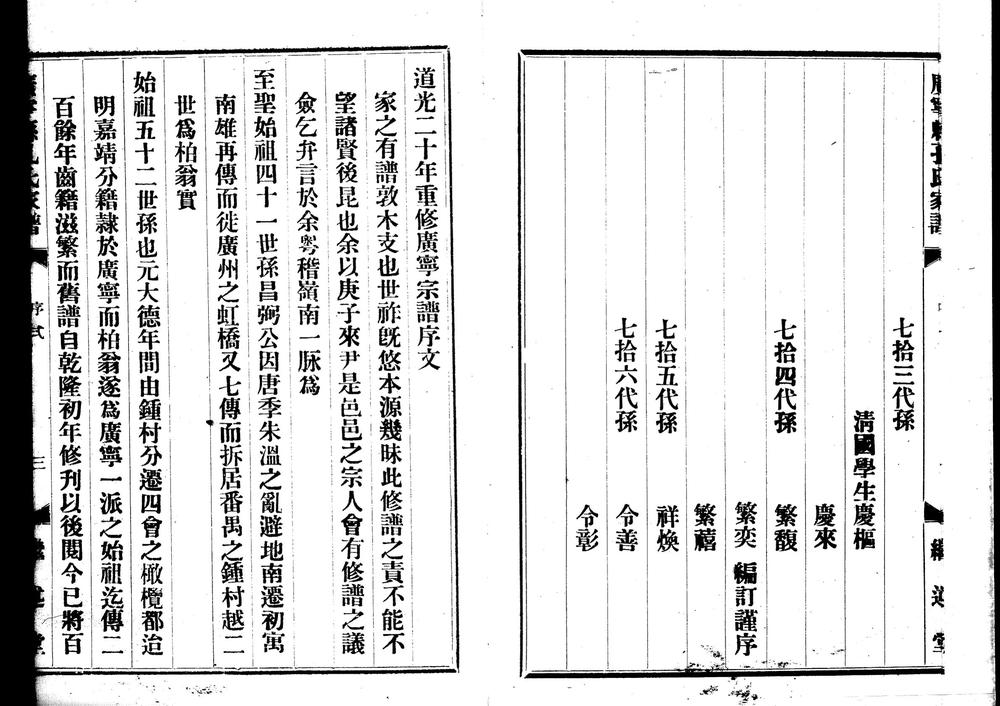 七拾三代孫
清國學生慶樞
慶來
七拾四代孫 繁馥
繁奕 編訂謹序
繁禧
七拾五代孫 祥煥
七拾六代孫 令善
令彰
道光二十年重修廣寧宗譜序文
家之有譜敦木支也世祚旣悠本源幾昧此修譜之責不能不
望諸賢後昆也余以庚子來尹是邑邑之宗人會有修譜之議
僉乞弁言於余粵稽嶺南一脉爲
至聖始祖四十一世孫昌弼公因唐季朱溫之亂避地南遷初寓
南雄再傳而徙廣州之虹橋又七傳而拆居番禺之鍾村越二
世爲柏翁實
始祖五十二世孫也元大德年間由鍾村分遷四會之橄欖都迨
明嘉靖分籍隷於廣寧而柏翁遂爲廣寧一派之始祖迄傳二
百餘年齒籍滋繁而舊譜自乾隆初年修刊以後閱今已將百
序弍
三